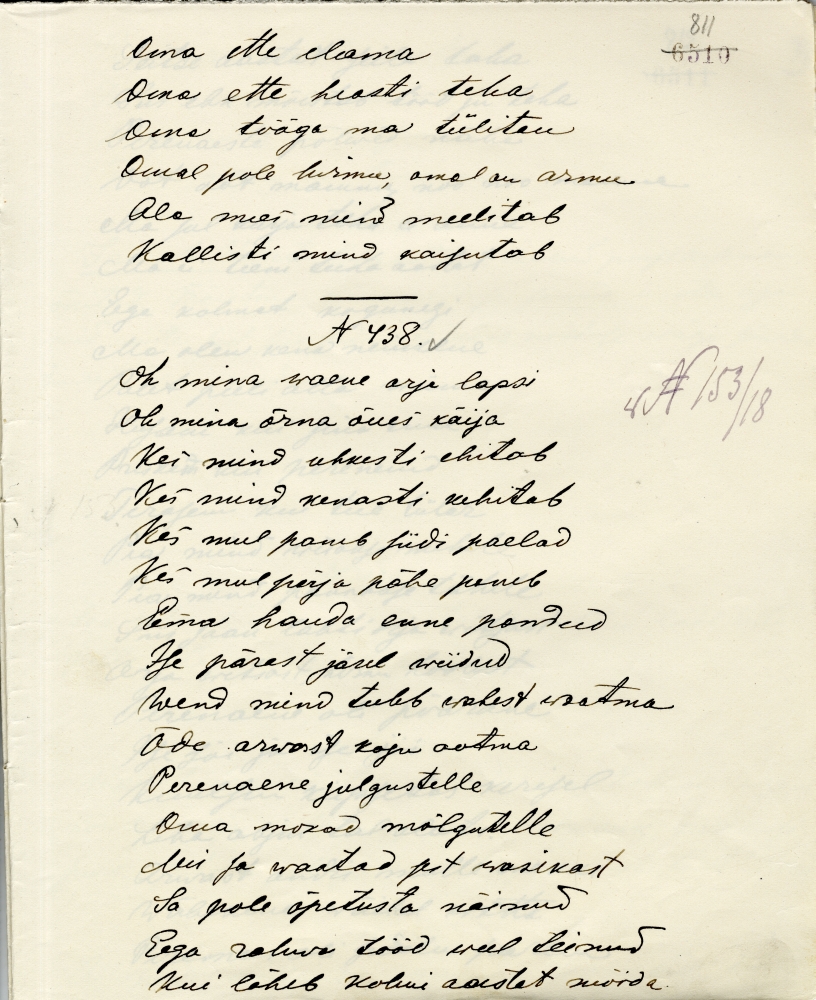 811
6510
Oma ette elama
Oma ette heasti teha
Oma tööga ma tülitan
Omal pole hirmu, omal on armu
Ala mees meelitab
Kallisti mind kaisutab
N 438.
Oh mina waene orja lapsi
Oh mina õrna õues käija
Kes mind uhkesti ehitab
Kes mind kenasti kehitab
Kes mul paneb siidi paelad
Kes mul pärja pähe paneb
Ema hauda enne pandud
Ise pärast järel wiidud
Wend mind tuleb wahest waatma
Õde arwast koju ootma
Perenaene julgustelle
Oma mokad mõlgutelle
Mis sa waatad wasikast
Sa pole õpetusta näinud
Ega rahwa tööd weel teinud
Kui läheb kolmi aastat mööda.
N 153/18